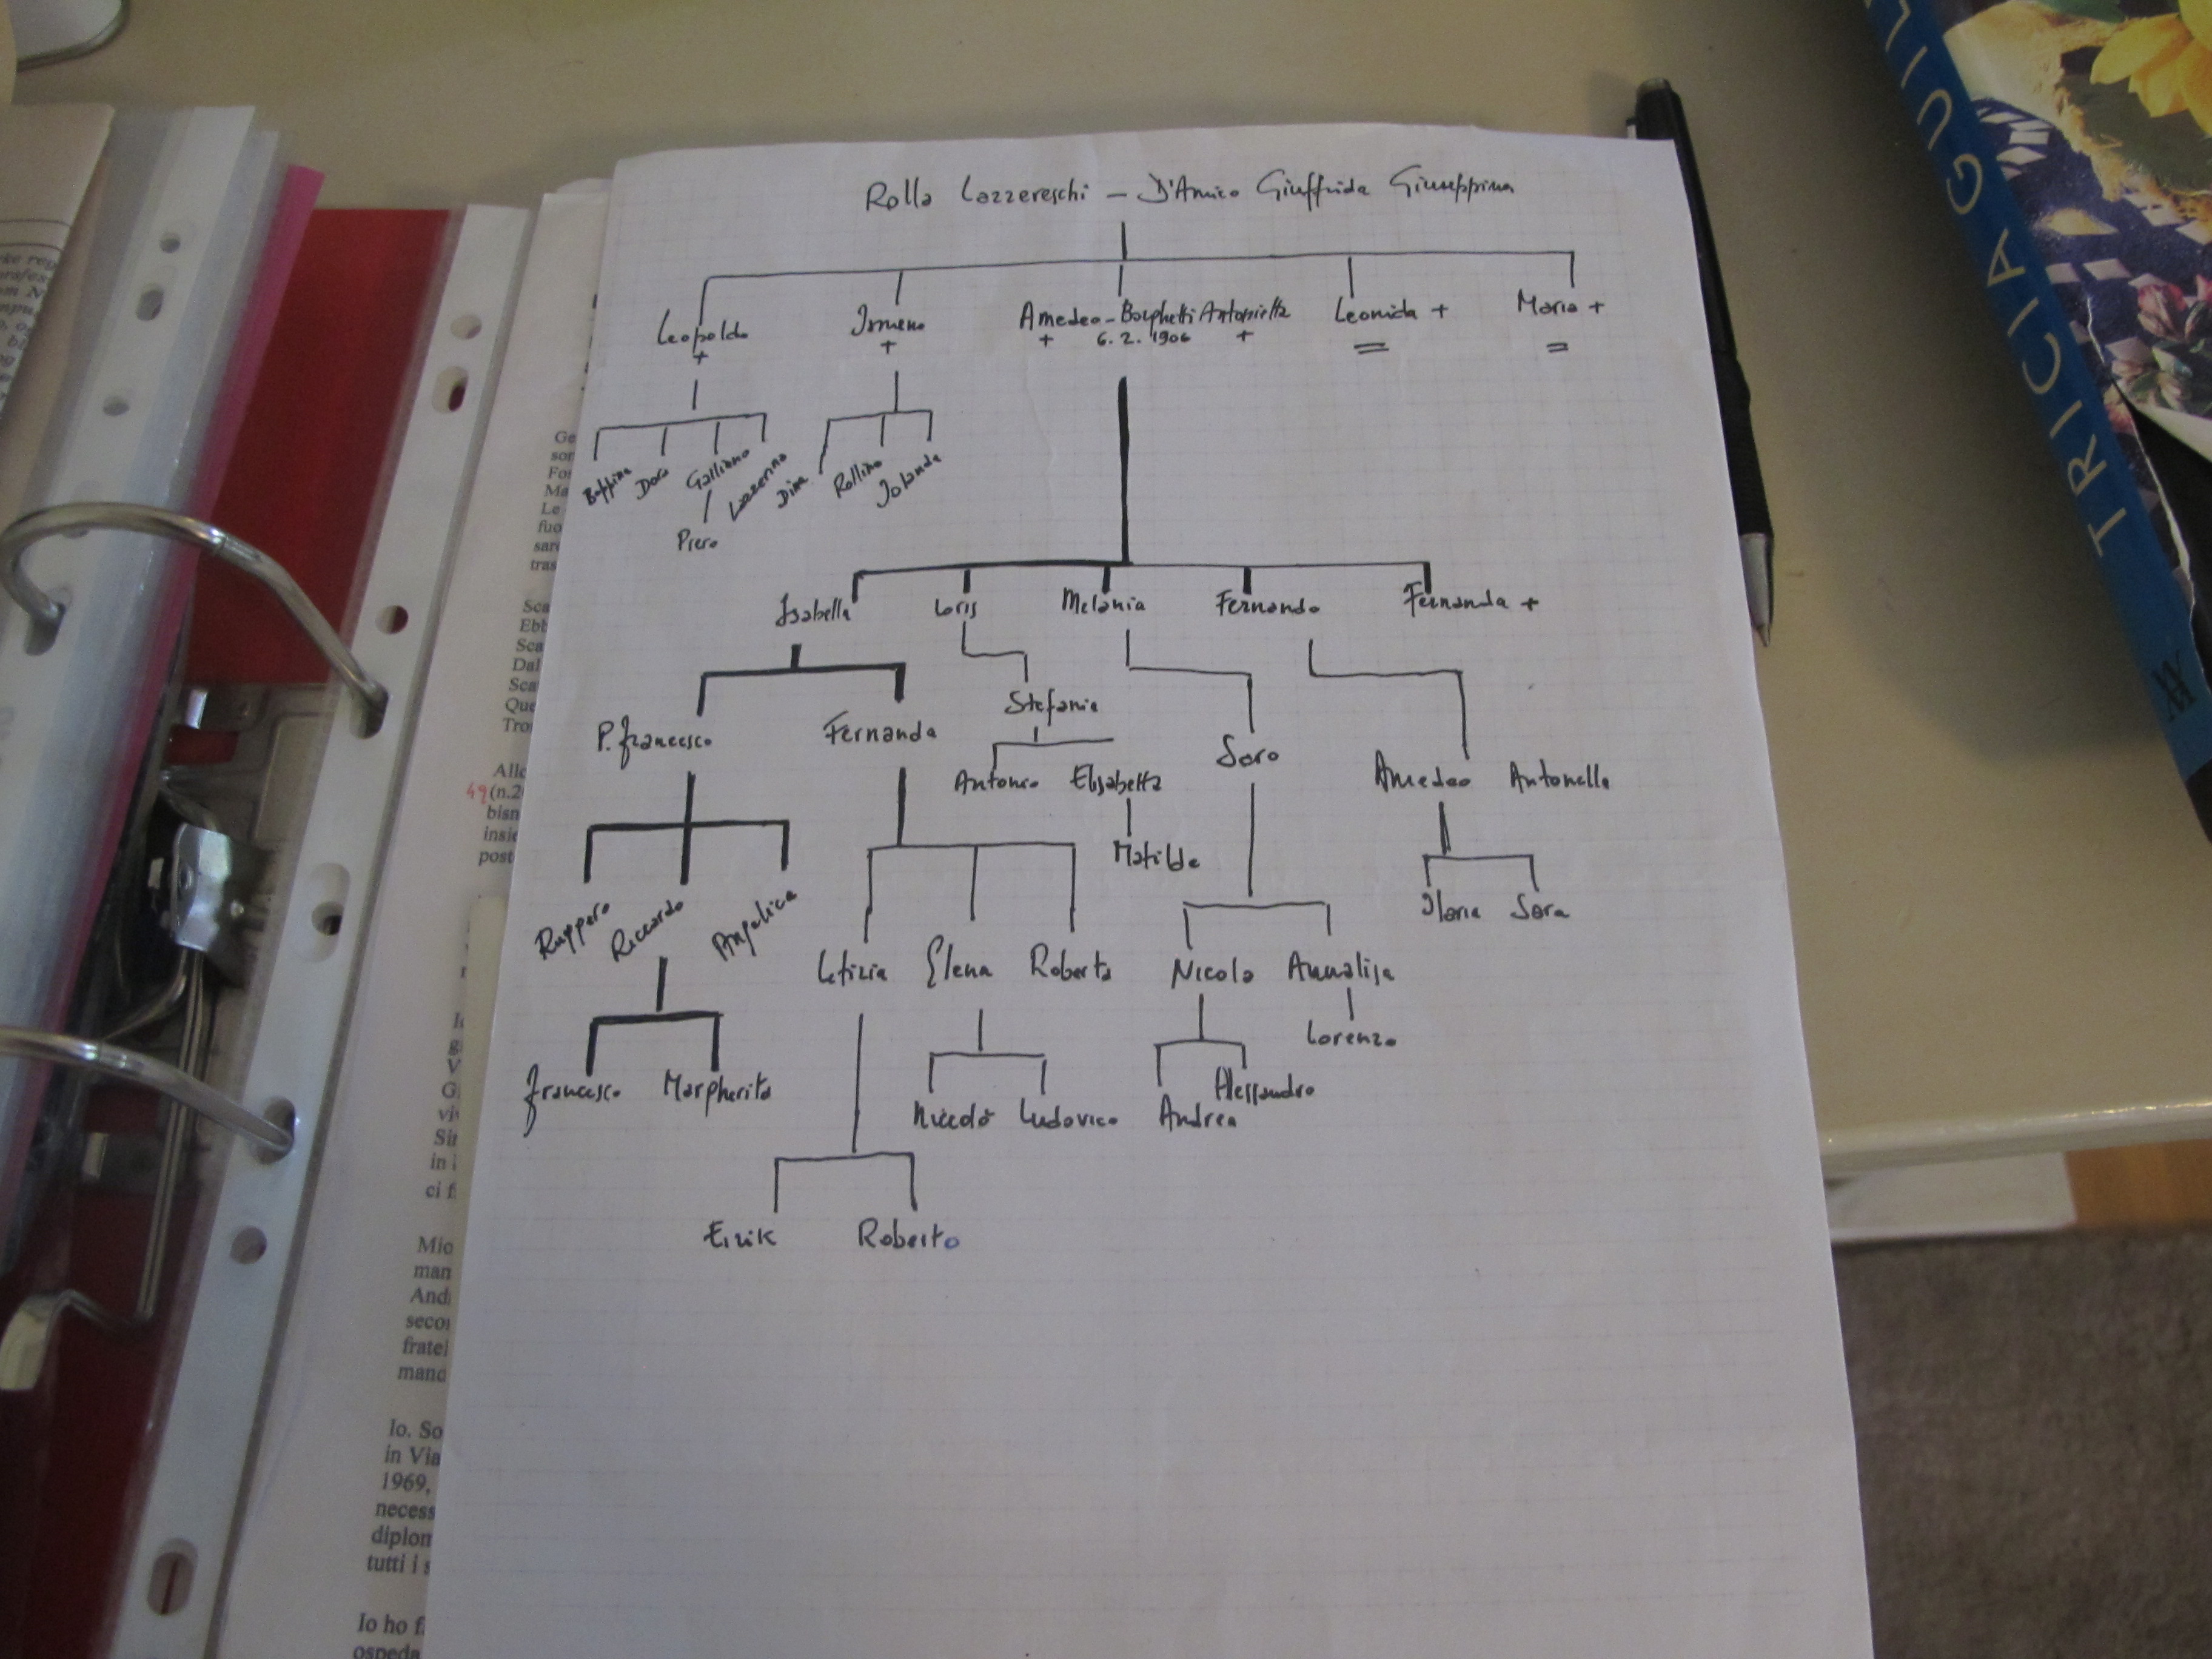 Rolla Lazzereschi - D'Amico Giuffrida Giuseppina
Leopoldo Ismeno Amedeo - Borghetti Antonietta Leonida + Maria +
+ + + 6. 2. 1906 + = =
Beppina Dora Galliano Lazzerino Dina Rollino Jolanda
Piero
Isabella Loris Melania Fernando Fernanda +
P. francesco Fernanda Stefania Saro Amedeo Antonella
Antonio Elisabetta
Matilde
Ruggero Riccardo Angelica Ilaria Sara
Letizia Elena Roberta Nicola Annalisa
Lorenzo
francesco Margherita Niccolò Ludovico Andrea Alessandro
Eirik Roberto
TRICIA GUIL
49
(n.2
Ge
son
Fo
Ma
Le
fuo
sare
tras
Sca
Ebb
Sca
Dal
Sca
Que
Tro
Allo
bisn
insie
post
Mio
man
And
secon
fratel
mand
Io. So
in Via
1969,
necess
diplom
tutti i s
Io ho f
ospeda